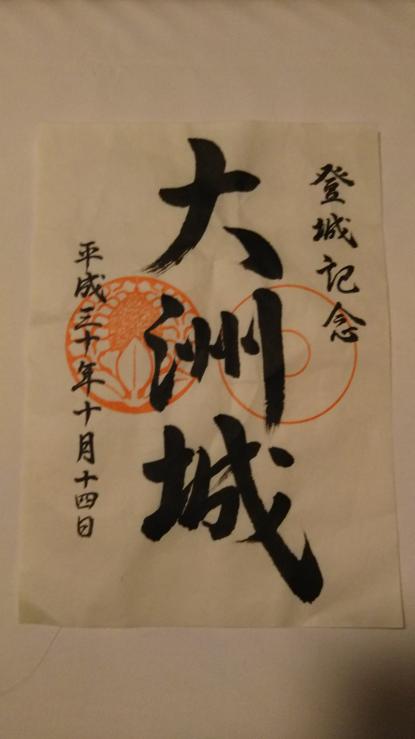 登城記念
大洲城
平成三十年十月十四日